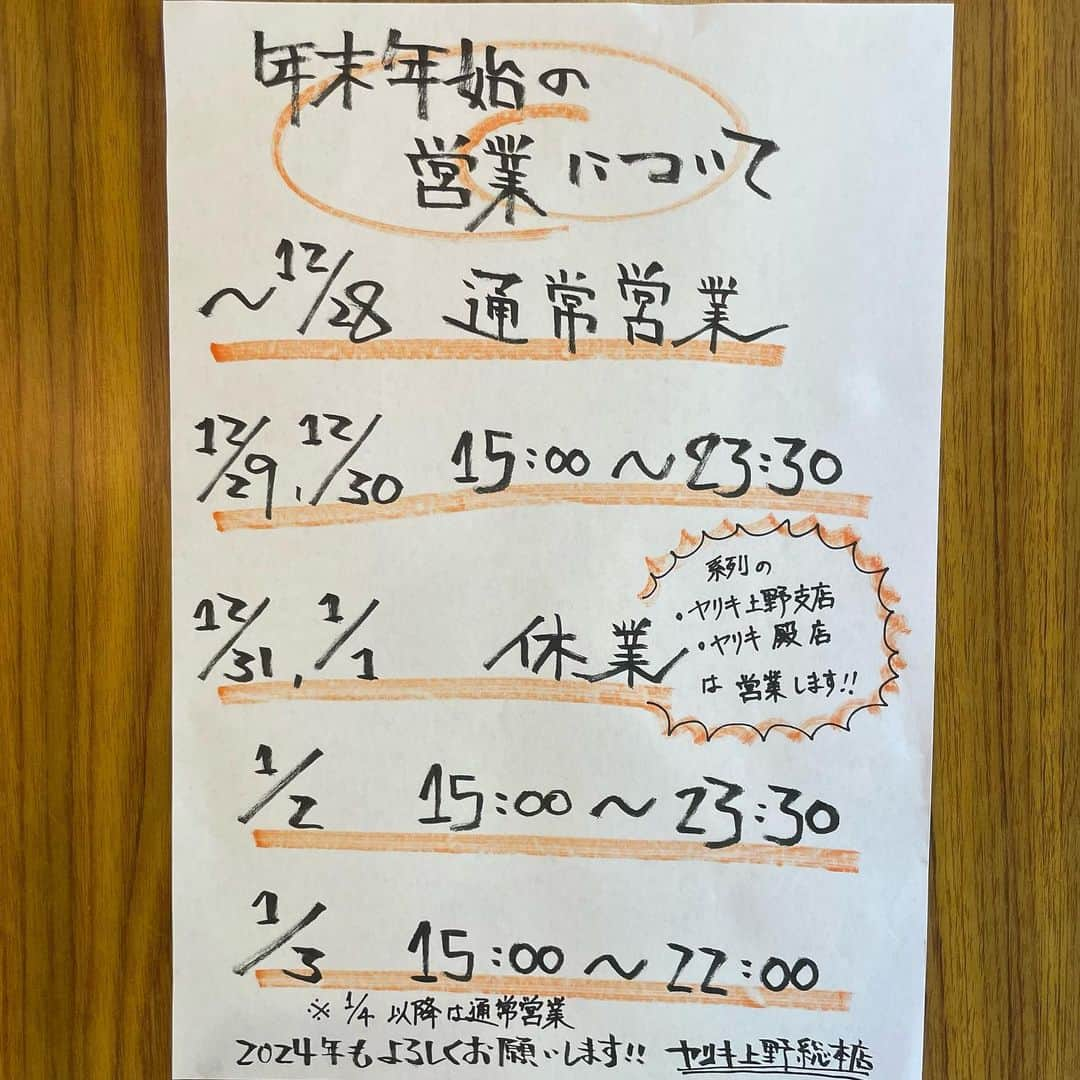 年末年始の
営業について
〜12/28 通常営業
12/29, 12/30 15:00〜23:30
12/31, 1/1 休業
系列の
・ヤリキ上野支店
・ヤリキ 殿店
は 営業します!!
1/2 15:00〜23:30
1/3 15:00〜22:00
※ 1/4 以降は通常営業
2024年もよろしくお願いします!! ヤリキ上野総本店